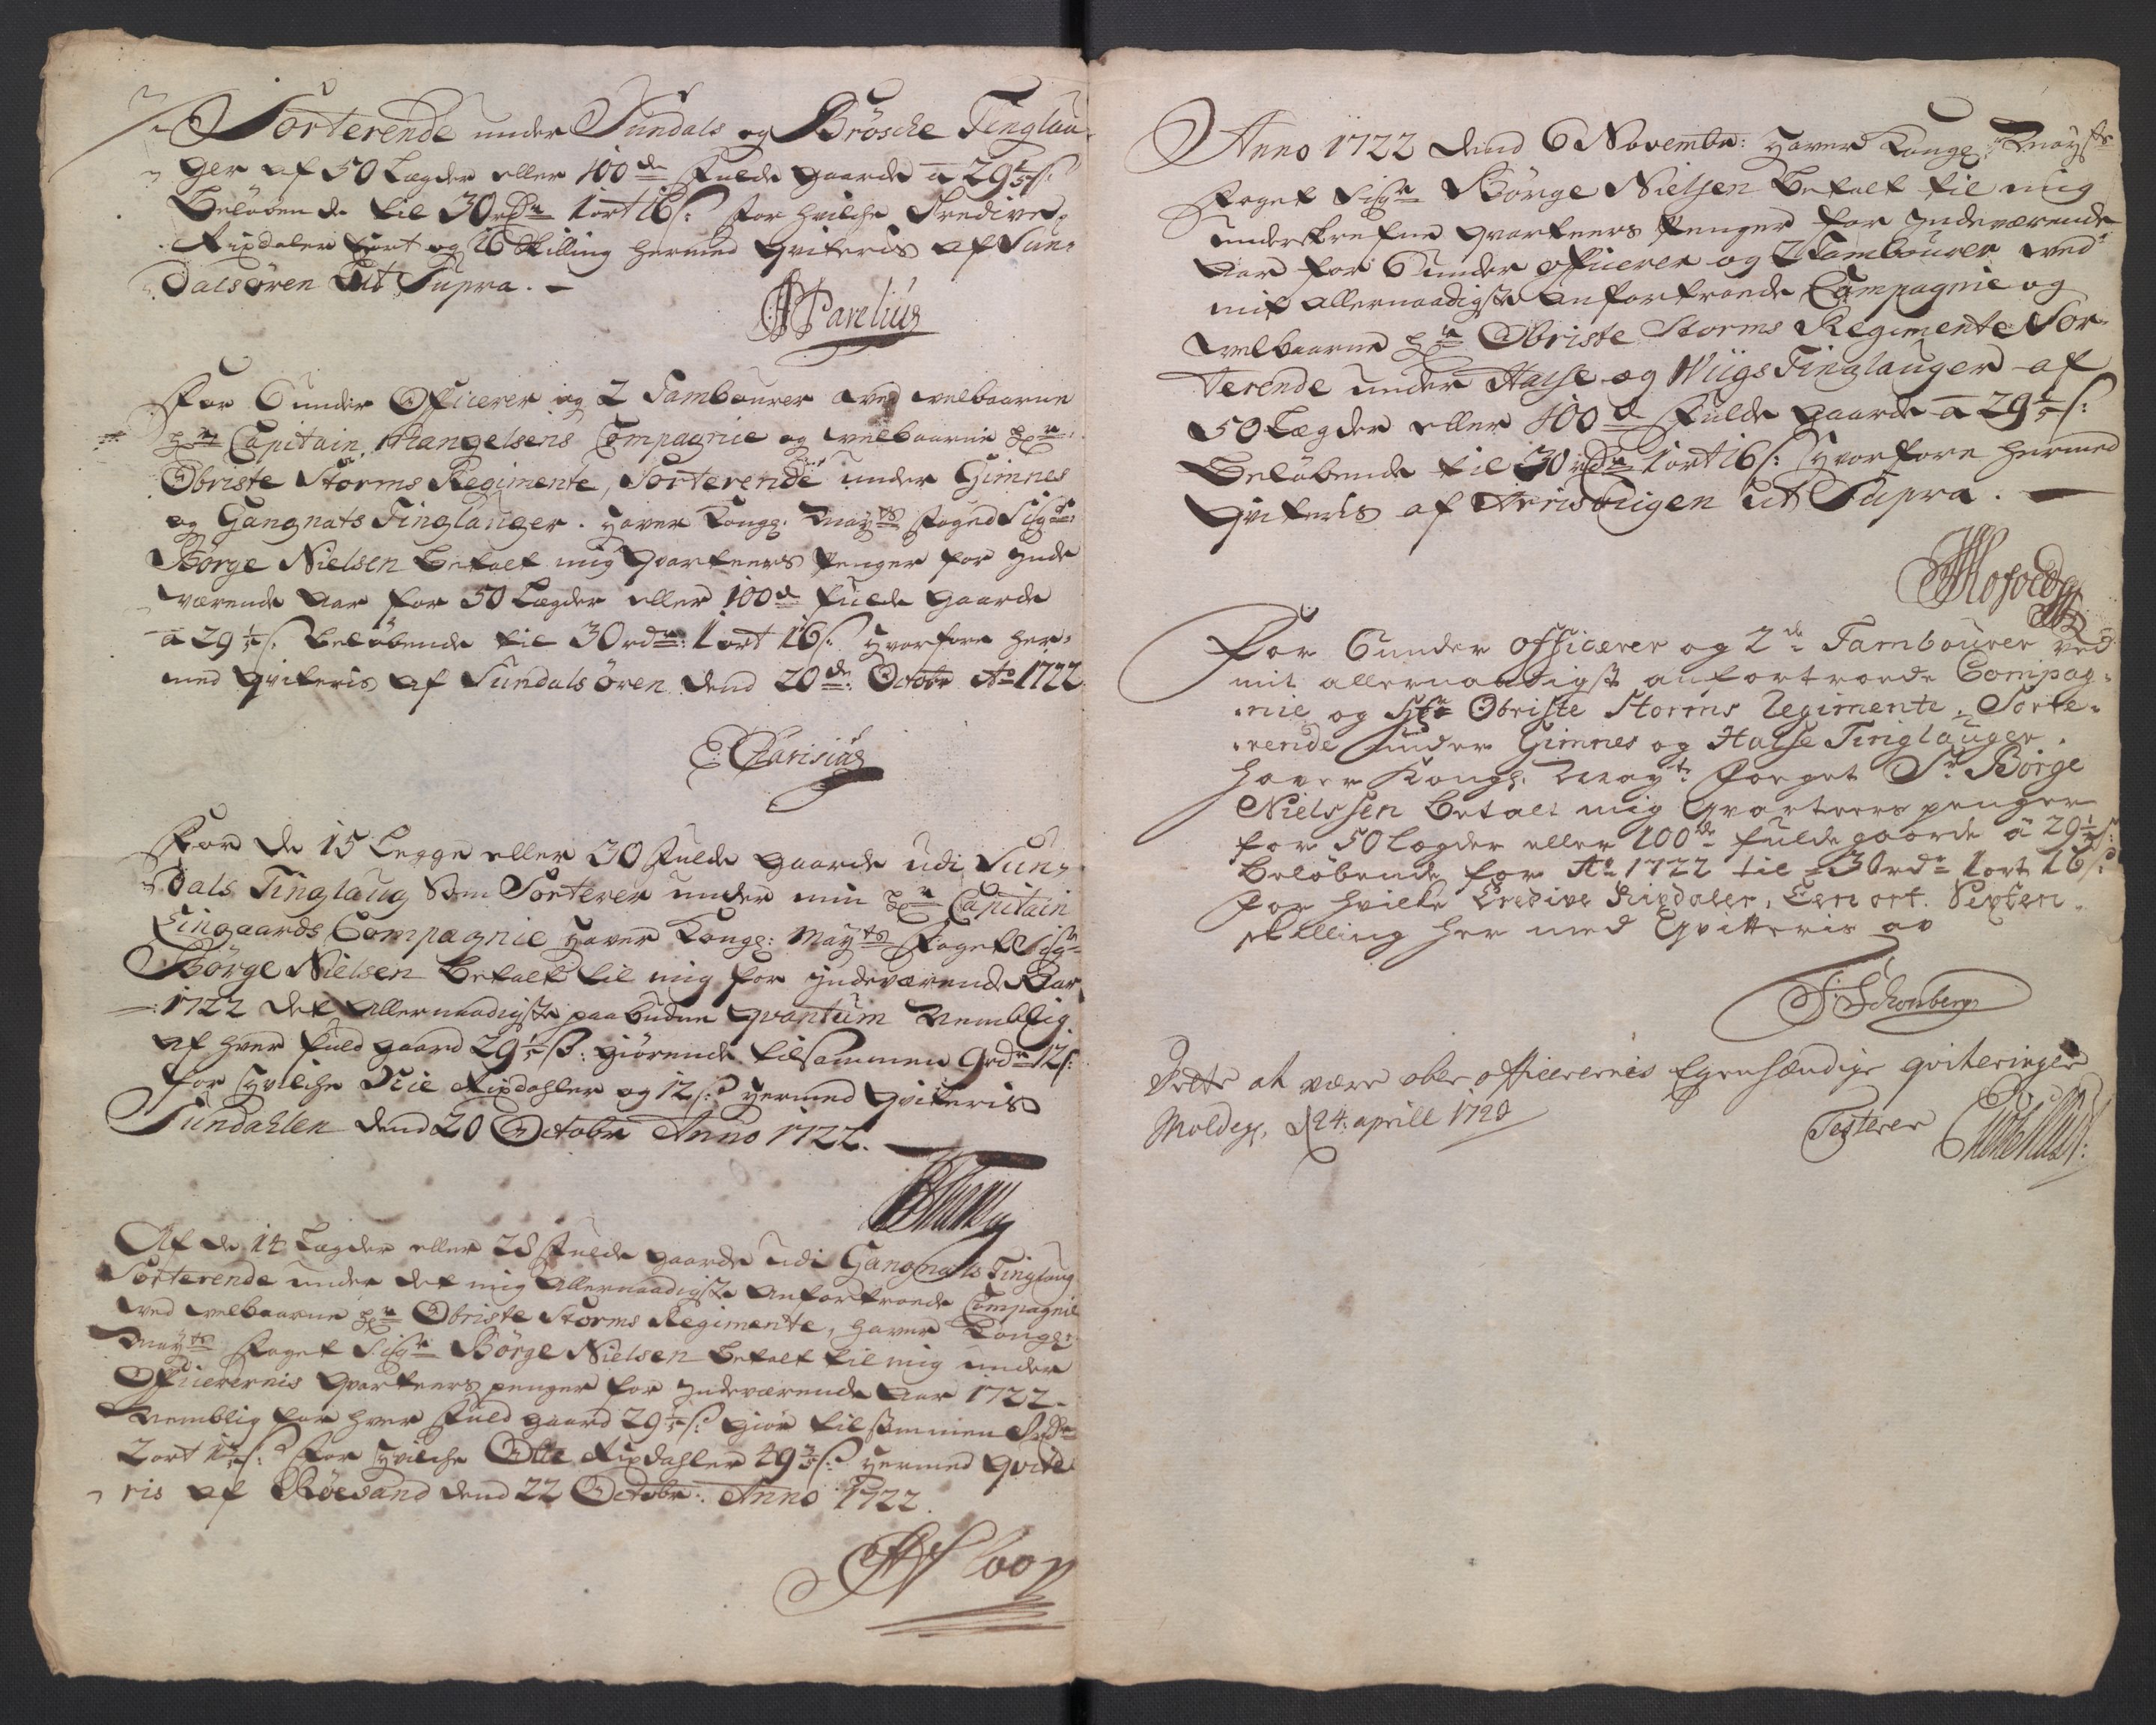 Sorterende under Sundals og Brösche Tinglau
ger af 50 Lægder eller 100de fulde gaarde a 29 1/5 s:
Beløbende til 30 rdr 1 ort 16 s: for hvilche Tredive
Rixdaler 1 ort og 16 Skilling hermed Qviteris af Sun,
Dalsøren Ut Supra. —
Parelius
For 6 under Officerer og 2 Tambourer ved velbaarne
Hr Capitain Mangelsens Compagnie og velbaarne Hr:
Obriste Storms Regimente, Sorterende under Gimnes
og Gangnats Tinglauger. haver Kongl: Mayts foged Sigr:
Börge Nielsen betalt mig Qvarteers Penger for inde
værende Aar for 50 Lægder eller 100de fulde gaarde
a 29 1/5 s. beløbende til 30 rdr: 1 ort 16 s. hvorfore her,
med Qviteris af Sundals Øren dend 20de: Octobr Ao 1722
C: Parisius
For de 15 Legge eller 30 fulde gaarde udi Sun,
Dals Tinglaug Som Sorterer under min Hr Capitain
Lingaards Compagnie haver Kongl: Mayts foget Sigr
Börge Nielsen betalt til mig for indeværende Aar
1722 det allernaadigste paabudne Qvantum Nemblig
af hver fuld gaard 29 1/5 s: giørende tilsammen 9 rdr 12 s:
for hvilche Nie Rixdahler og 12 s: hermed Qviteris
Sundahlen dend 20 Octobr Anno 1722. —
Af de 14 Lægder eller 28 fulde gaarde udi Gangnats Tinglaug
Sorterende under det mig allernaadigste anfortroede Compagnie
ved velbaarne Hr Obriste Storms Regimente, haver Kongl:
Mayts foget Sigr Börge Nielsen betalt til mig under
Officerernis Qvarteers penger for indeværende Aar 1722.
Nemblig for hver fuld gaard 29 1/5 s: giør tilsammen 8 rdr
2 ort 1 3/5 s: for hvilche Otte Rixdahler 49 3/5 s: hermed Qvite
ris af Röesand dend 22 Octobr: Anno 1722.
Anno 1722 dend 6 Novembr: haver Kongl: Mayts
foget Sigr Börge Nielsen betalt til mig
underskrefne Qvarteers Penger for indeværende
Aar for 6 under officerer og 2 Tambourer ved
mit allernaadigste anfortroede Compagnie og
velbaarne Hr Obriste Storms Regimente Sor
terende under Halse og Wiigs Tinglauger af
50 Lægder eller 100de fulde gaarde a 29 1/5 s:
beløbende til 30 rdr 1 ort 16 s: hvorfore hermed
Qviteris af Ut Supra. —
For 6 under officerer og 2de Tambourer ved
mit allernaadigst anfortroede Compag,
nie og Hr Obriste Storms Regimente, Sorte,
rende under Gimnes og Halse Tinglauger.
haver Kongl: Mayts foeget Sr Börge
Nielssen betalt mig Qvarteers penger
for 50 Lægder eller 100de fulde gaarde a 29 1/5 s:
beløbende for Ao 1722 til 30 rdr 1 ort 16 s:
for hvilke Tredive Rixdaler, Een ort. Sexten
skilling her med Qvitteris av
F: Schonberg
Dette at være ober officerernes Egenhændige qviteringer
Testerer
Molde, d 24: aprill 1723